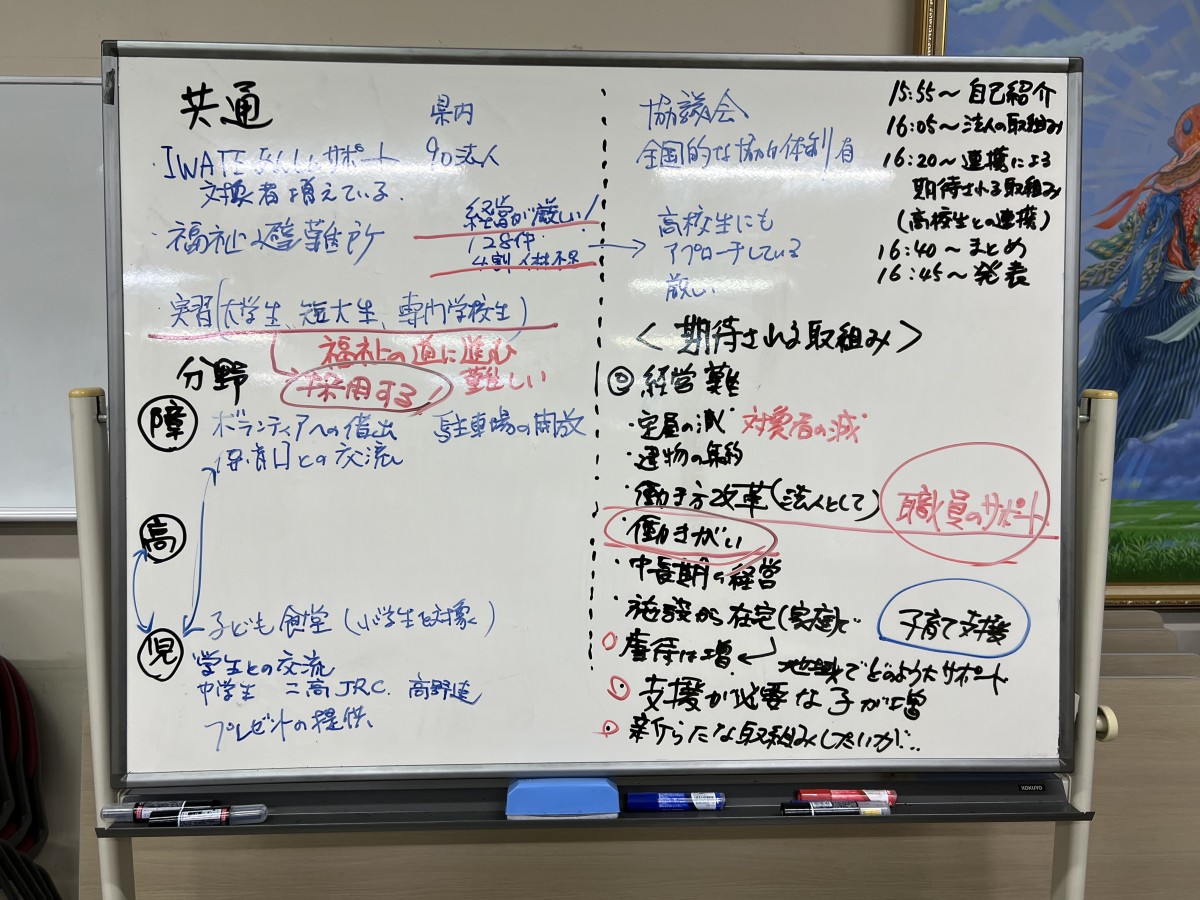 共通
県内
・IWATEあんしんサポート 90法人
交換者増えている.
・福祉避難所
経営が厳しい!
128件
4割 人材不足
実習(大学生、短大生、専門学校生)
福祉の道に進む
難しい
採用する!
分野
障
ボランティアへの貸出 駐車場の開放
保育園との交流
高
児
子ども食堂 (小学生対象)
学生との交流
中学生 二高JRC. 高野連
プレゼントの提供.
協議会
全国的な協力体制有
高校生にも
アプローチしている
厳しい
15:55～自己紹介
16:05～法人の取組み
16:20～連携による
期待される取組み
(高校生との連携)
16:40～まとめ
16:45～発表
<期待される取組み>
◎経営難
・定員の減 対象者の減
・建物の集約
・働き方改革(法人として)
職員のサポート
・働きがい
・中長期の経営
・施設から在宅(家庭)で
子育て支援
・虐待は増
地域でどのようなサポート
・支援が必要な子が増
・新らたな取組みしたいが..
KOKUYO